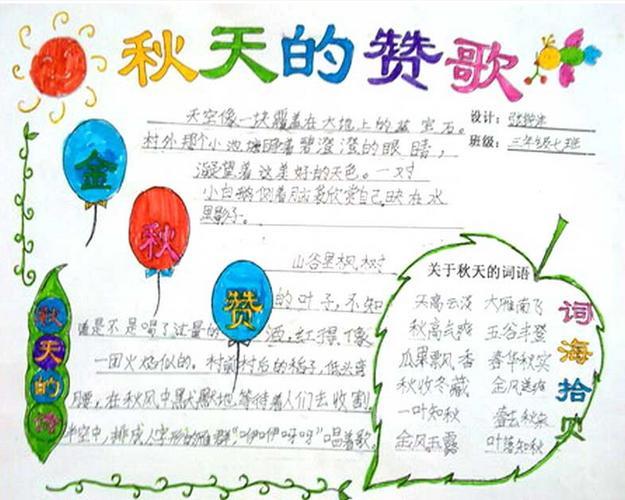 秋天的赞歌
天空像一块覆盖在大地上的蓝宝石。
村外那个小池塘睁着碧澄澄的眼睛，
凝望着这美好的天色。一对
小白鹅侧着欣赏自己映在水
里影子。
设计：
班级：三年级七班
金
秋
赞
山谷里枫树
的叶子，不知
是不是喝了过量的酒，红得像
一团火焰似的。村前村后的稻子，低头弯
腰，在秋风中默默地等待着人们去收割
半空中，排成人字形的雁群"咿咿呀呀"唱着歌。
秋天的诗
关于秋天的词语
天高云淡 大雁南飞
秋高气爽 五谷丰登
瓜果飘香 春华秋实
秋收冬藏 金风送爽
一叶知秋
金风玉露 叶落知秋
词海拾贝